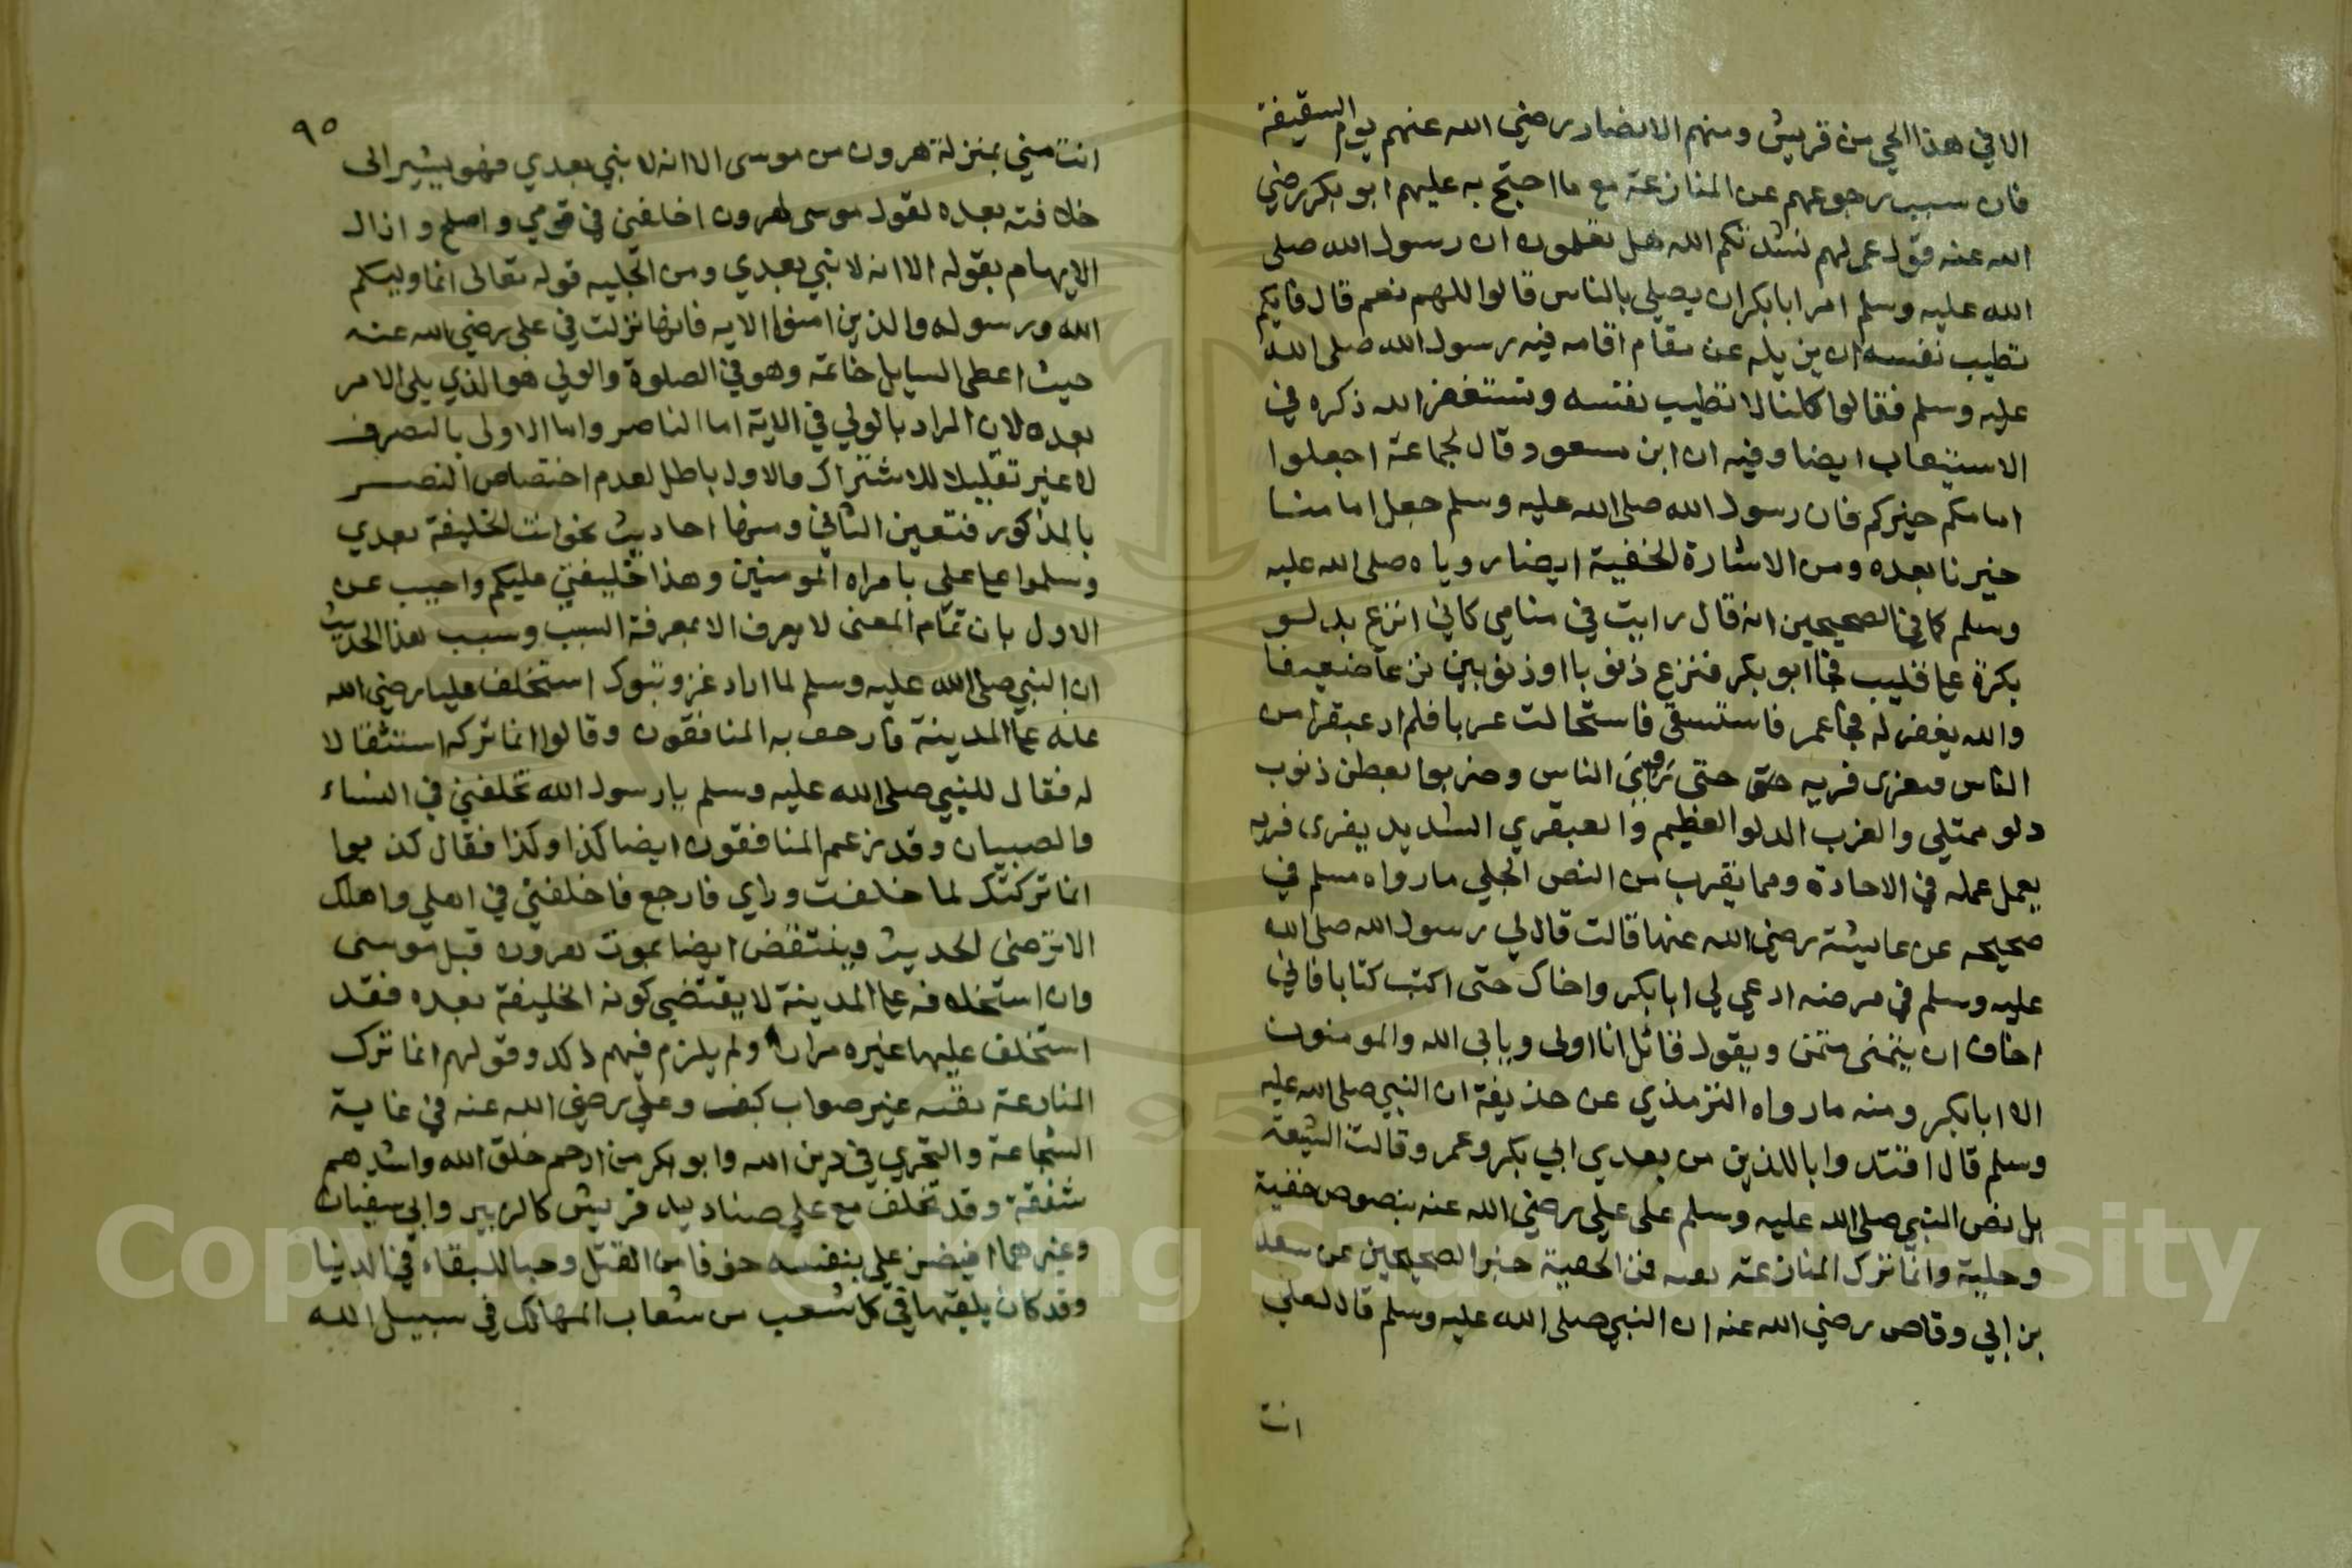 الا في هذا الحي من قريش ومنهم الانصار رضي الله عنهم يوم السقيفة
فان سبب رجوعهم عن المنازعة مع ما احتج به عليهم ابو بكر رضي
الله عنه قول عمر لهم نشدتكم الله هل تعلمون ان رسول الله صلى
الله عليه وسلم امر ابا بكر ان يصلي بالناس قالوا اللهم نعم قال فايكم
تطيب نفسه ان يزيله عن مقام اقامه فيه رسول الله صلى الله
عليه وسلم فقالوا كلنا لا تطيب نفسه ونستغفر الله ذكره في
الاستيعاب ايضا وفيه ان ابن مسعود قال لجماعة اجعلوا
امامكم خيركم فان رسول الله صلى الله عليه وسلم جعل امامنا
خيرنا بعده ومن الاشارة الخفية ايضا روياه صلى الله عليه
وسلم كما في الصحيحين انه قال رايت في منامي كاني انزع بدلو
بكرة على قليب فجا ابو بكر فنزع ذنوبا او ذنوبين نزعا ضعيفا
والله يغفر له فجا عمر فاستسقى فاستحالت غربا فلم ار عبقرا من
الناس يفري فريه حتى حتى روي الناس وضربوا بعطن ذنوب
دلو ممتلي والغرب الدلو العظيم والعبقري الشديد يفري فريه
يعمل عمله في الاجادة ومما يقرب من النص الجلي ما رواه مسلم في
صحيحه عن عايشة رضي الله عنها قالت قال لي رسول الله صلى الله
عليه وسلم في مرضه ادعي لي ابا بكر واخاك حتى اكتب كتابا فاني
اخاف ان يتمنى متمن ويقول قائل انا اولى ويابى الله والمومنون
الا ابا بكر ومنه ما رواه الترمذي عن حذيفة ان النبي صلى الله عليه
وسلم قال اقتدوا باللذين من بعدي ابي بكر وعمر وقالت الشيعة
بل نص النبي صلى الله عليه وسلم على علي رضي الله عنه بنصوص خفية
وجلية وانما ترك المنازعة تقيه فمن الخفية خبر الصحيحين عن سعد
بن ابي وقاص رضي الله عنه ان النبي صلى الله عليه وسلم قال لعلي
انت
٩٥
انت مني بمنزلة هرون من موسى الا انه لا نبي بعدي فهو يشير الى
خلافته بعده لقول موسى لهرون اخلفني في قومي واصلح وازال
الايهام بقوله الا انه لا نبي بعدي ومن الجليه قوله تعالى انما وليكم
الله ورسوله والذين امنوا الايه فانها نزلت في علي رضي الله عنه
حيث اعطى السايل خاتمه وهو في الصلوة والولي هو الذي يلي الامر
بعده لان المراد بالولي في الاية اما الناصر واما الاولى بالتصرف
لا غير تقليلا للاشتراك والاول باطل لعدم اختصاص النصر
بالمذكور فتعين الثاني ومنها احاديث نحو انت الخليفة بعدي
وسلموا على علي بامراه المومنين وهذا خليفتي عليكم واجيب عن
الاول بان تمام المعنى لا يعرف الا بمعرفة السبب وسبب هذا الحديث
ان النبي صلى الله عليه وسلم لما اراد غزو تبوك استخلف عليا رضي الله
عنه على المدينة فارجف به المنافقون وقالوا انما تركه استثقالا
له فقال للنبي صلى الله عليه وسلم يا رسول الله تخلفني في النساء
والصبيان وقد زعم المنافقون ايضا كذا وكذا فقال كذبوا
انما تركتك لما خلفت وراي فارجع فاخلفني في اهلي واهلك
الا ترضى الحديث وينتقض ايضا بموت هرون قبل موسى
وان استخلافه على المدينة لا يقتضي كونه الخليفة بعده فقد
استخلف عليها غيره مرارا ولم يلزم فيهم ذلك وقولهم انما ترك
المنازعة تقيه غير صواب كيف وعلي رضي الله عنه في غاية
الشجاعة والتجري في دين الله وابو بكر من ارحم خلق الله واشدهم
شفقة وقد تخلف مع علي صناديد قريش كالزبير وابي سفيان
وغيرهما افيضن علي بنفسه خوفا من القتل وحبا للبقاء في الدنيا
وقد كان يلقيها في كل شعب من شعاب المهالك في سبيل الله
Copyright © King Saud University